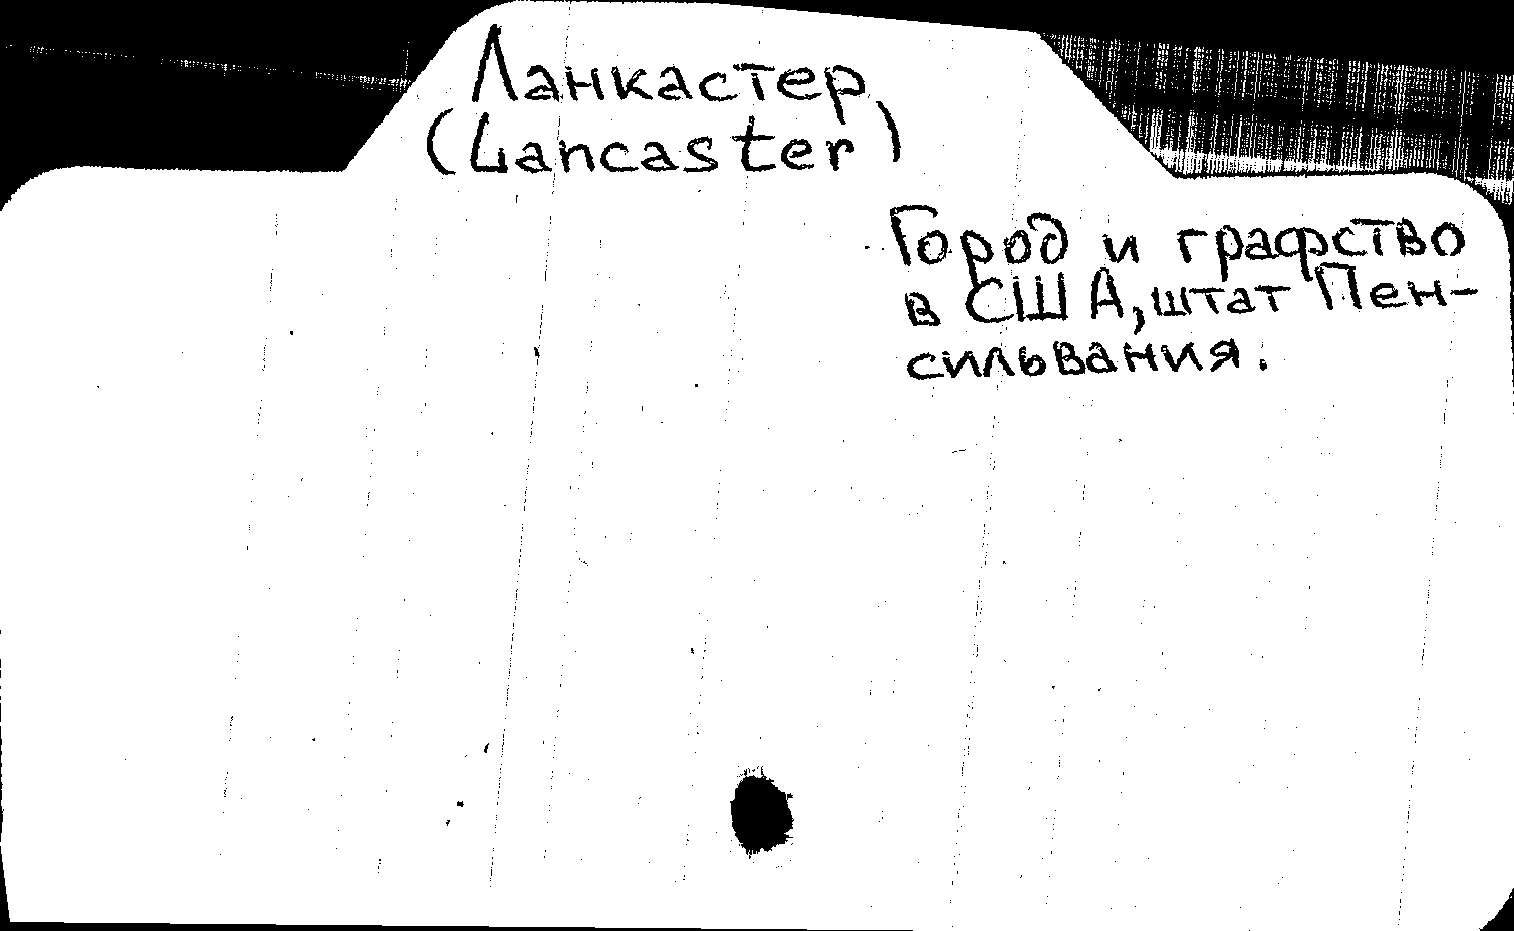 Ланкастер
(Lancaster)
Город и графство
в США, штат Пен-
сильвания.